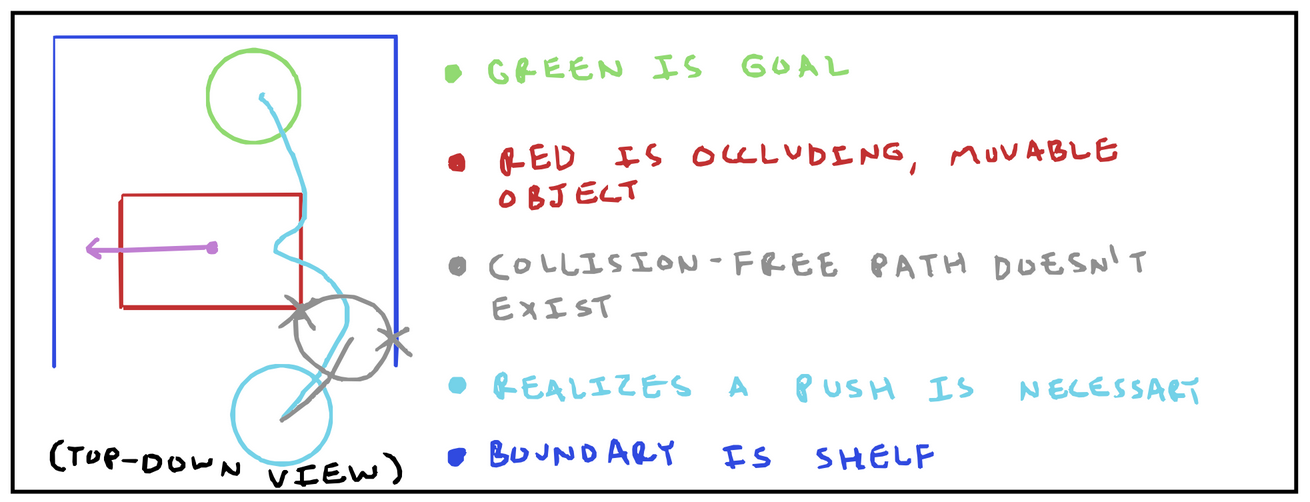 GREEN IS GOAL
RED IS OCCLUDING, MOVABLE
OBJECT
COLLISION-FREE PATH DOESN'T
EXIST
REALIZES A PUSH IS NECESSARY
BOUNDARY IS SHELF
(TOP-DOWN VIEW)